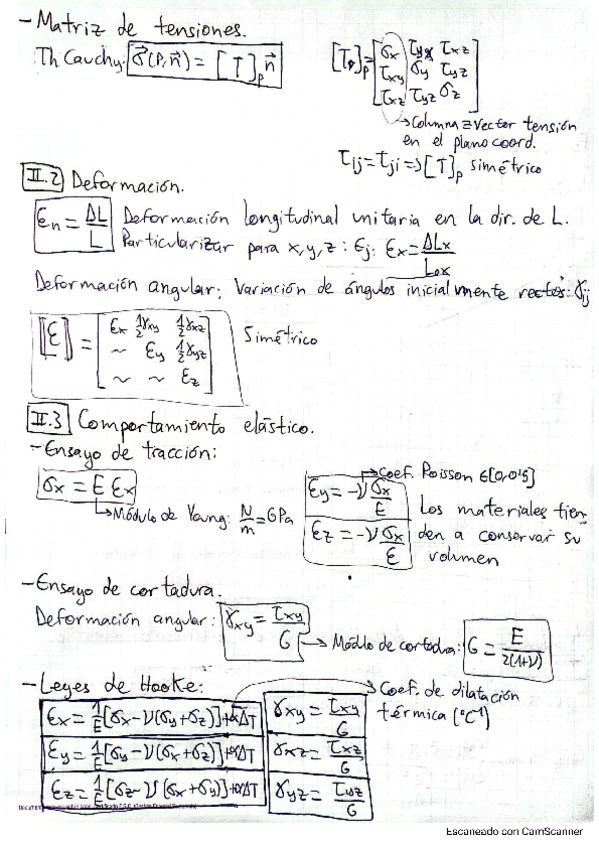 - Matriz de tensiones.
Th Cauchy: σ⃗(P,n⃗) = [T]ₚ n⃗
[Tₚ]ₚ = [σx τyx τxz
τxy σy τyz
τxz τyz σz]
→ Columna ≡ vector tensión
en el plano coord.
τij = τji => [T]ₚ simétrico
II.2 Deformación.
εn = ΔL/L Deformación longitudinal unitaria en la dir. de L.
Particularizar para x, y, z: εj: εx = ΔLx/Lox
Deformación angular: Variación de ángulos inicialmente rectos: γij
[[ε]] = [εx ½γxy ½γxz
~ εy ½γyz
~ ~ εz]
Simétrico
II.3 Comportamiento elástico.
- Ensayo de tracción:
σx = E εx
→ Módulo de Young: N/m = GPa
→ Coef. Poisson ∈[0,0'5]
εy = -ν σx/E
εz = -ν σx/E
Los materiales tien-
den a conservar su
volumen
- Ensayo de cortadura.
Deformación angular: γxy = τxy/G
→ Módlo de cortadura: G = E/2(1+ν)
- Leyes de Hooke:
→ Coef. de dilatación
térmica (°C⁻¹)
εx = 1/E [σx - ν(σy + σz)] + αΔT γxy = τxy/G
εy = 1/E [σy - ν(σx + σz)] + αΔT γxz = τxz/G
εz = 1/E [σz - ν(σx + σy)] + αΔT γyz = τyz/G
Escaneado con CamScanner